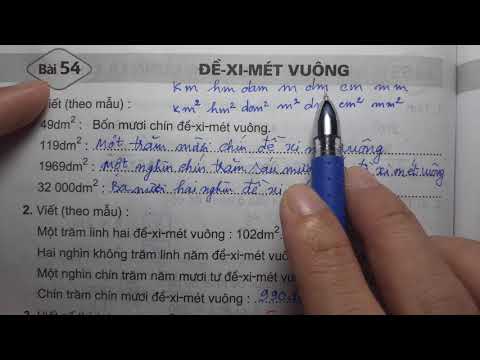 Bài 54 ĐỀ-XI-MÉT VUÔNG
km hm dam m dm cm mm
km² hm² dam² m² cm² mm²
Viết (theo mẫu) :
49dm² : Bốn mươi chín đề-xi-mét vuông.
119dm² : Một trăm mười chín đề xi vuông
1969dm² : Một nghìn chín trăm sáu xi mét vuông
32 000dm² : Ba mươi hai nghìn đề xi
2. Viết (theo mẫu) :
Một trăm linh hai đề-xi-mét vuông : 102dm²
Hai nghìn không trăm linh năm đề-xi-mét vuông
Một nghìn chín trăm năm mươi tư đề-xi-mét vu
Chín trăm chín mươi đề-xi-mét vuông : 990